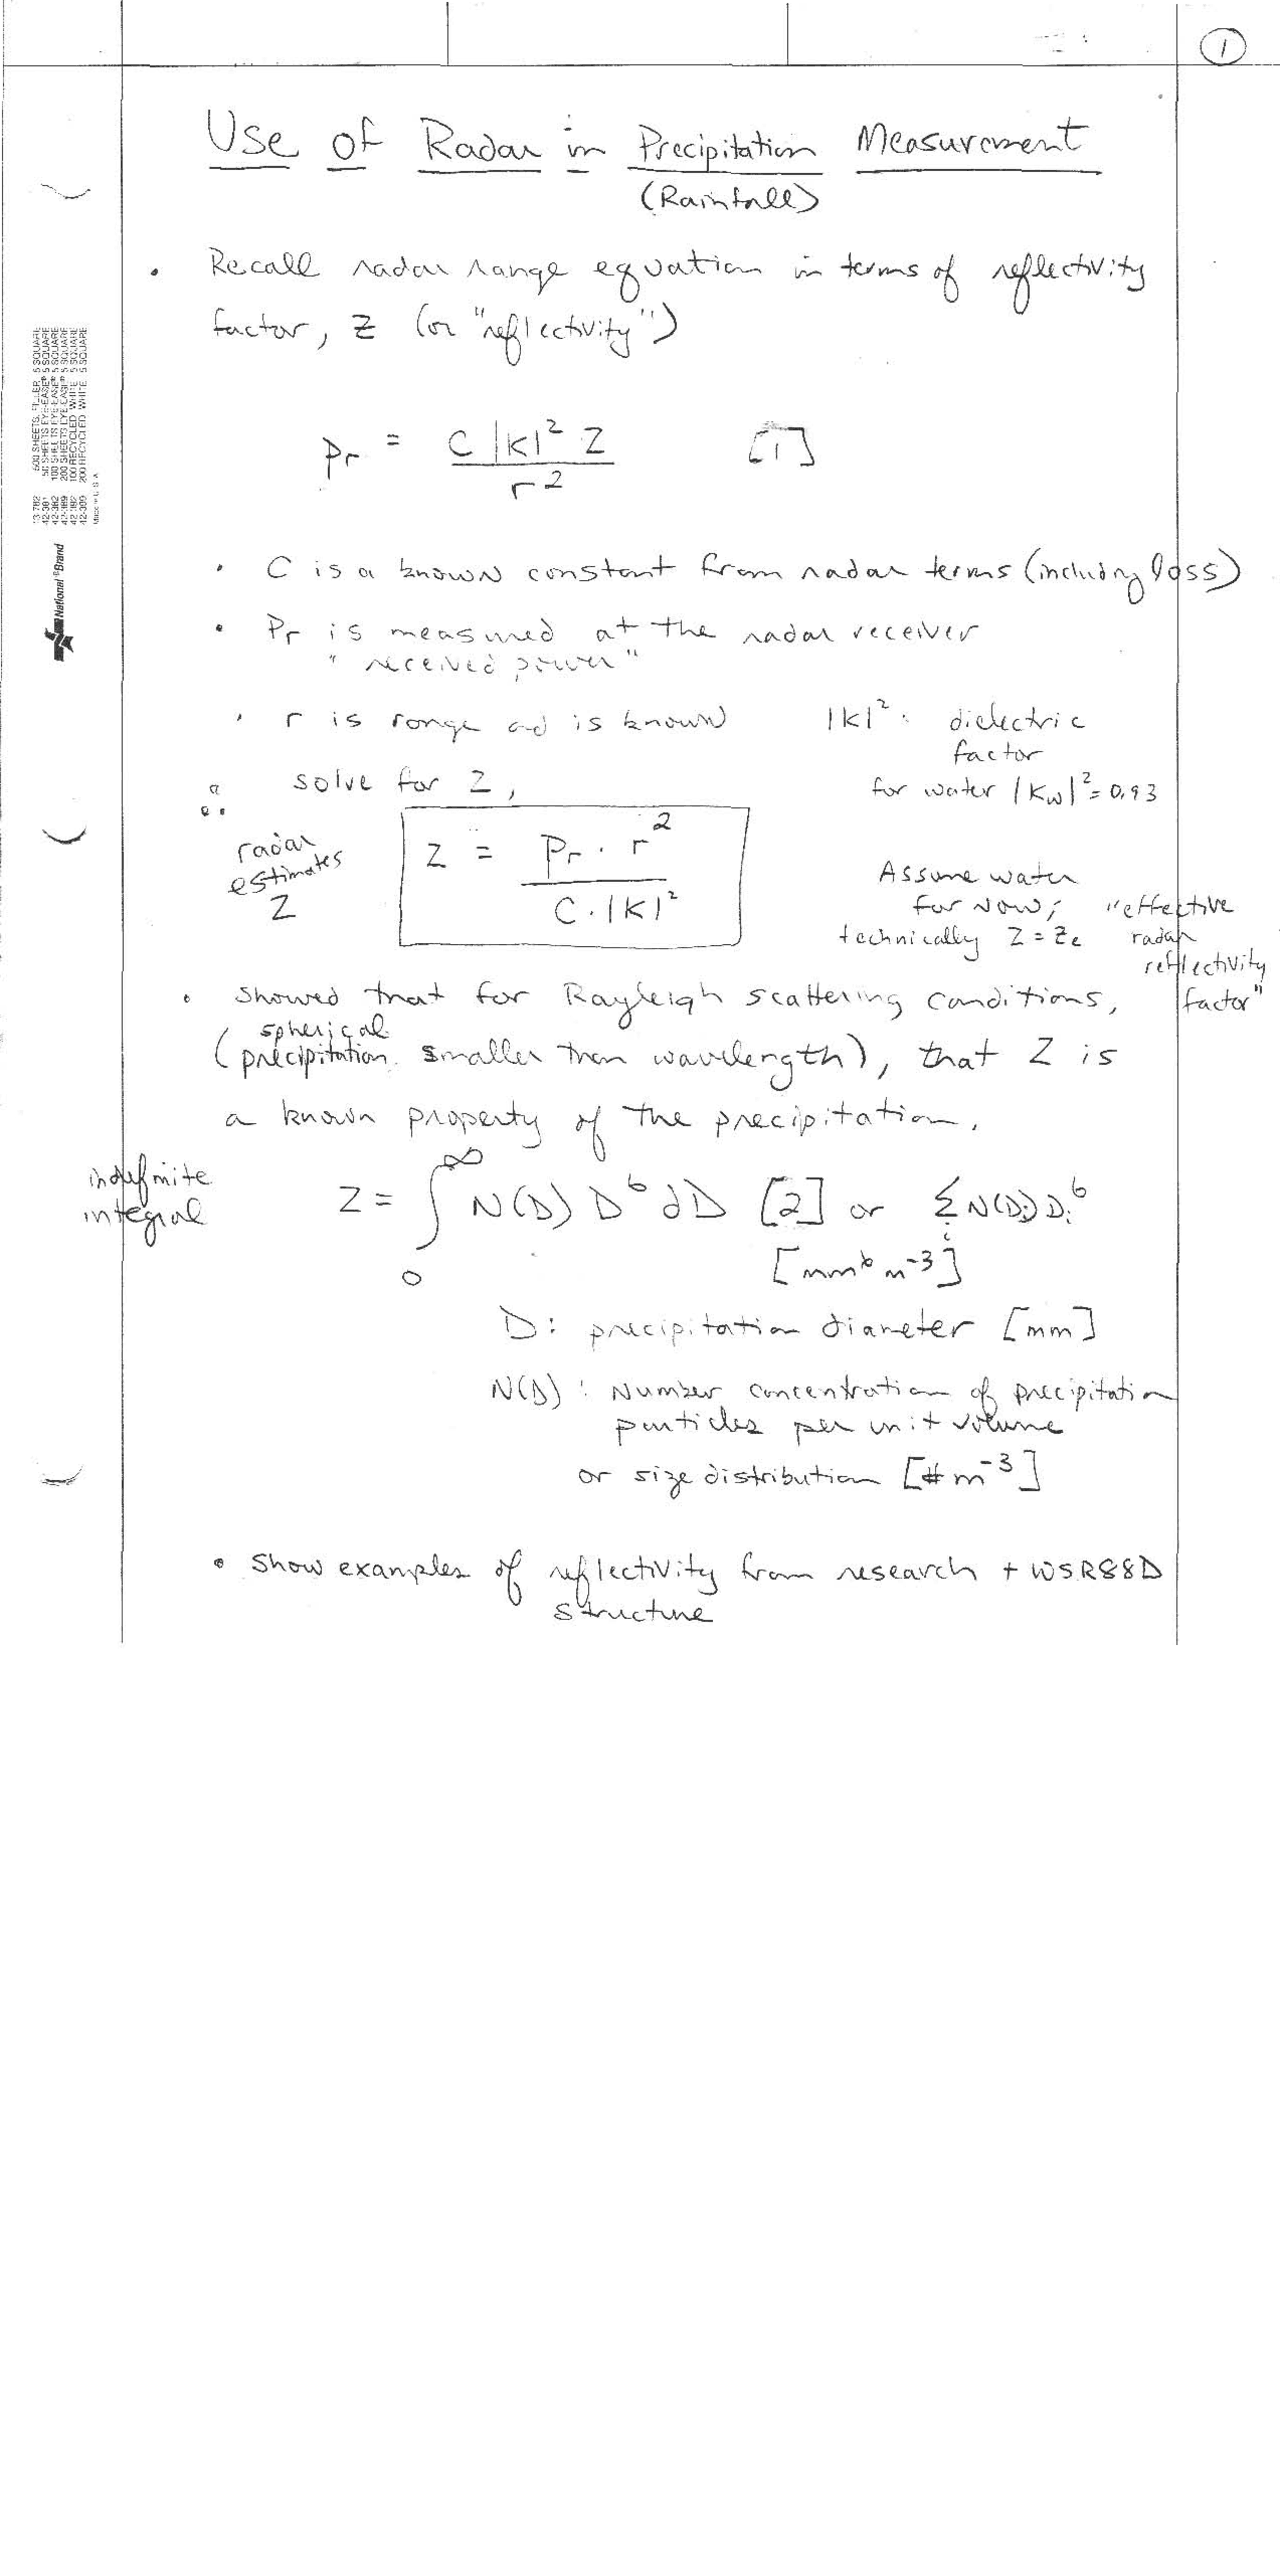 1
Use of Radar in Precipitation Measurement
(Rainfall)
• Recall radar range equation in terms of reflectivity
factor, Z (or "reflectivity")
Pr = C |K|² Z / r² [1]
• C is a known constant from radar terms (including loss)
• Pr is measured at the radar receiver
"received power"
• r is range and is known |K|²: dielectric
factor
∴ solve for Z, for water |Kw|² = 0.93
radar
estimates
Z
Z = Pr · r² / C · |K|²
Assume water
for now; "effective
technically Z = Ze radar
reflectivity
factor"
• Showed that for Rayleigh scattering conditions,
spherical
(precipitation smaller than wavelength), that Z is
a known property of the precipitation.
indefinite
integral
Z = ∫₀^∞ N(D) D⁶ dD [2] or Σᵢ N(Dᵢ) Dᵢ⁶
[mm⁶ m⁻³]
D: precipitation diameter [mm]
N(D): Number concentration of precipitation
particles per unit volume
or size distribution [# m⁻³]
• Show examples of reflectivity from research + WSR88D
structure
13-782 500 SHEETS, FILLER 5 SQUARE
42-381 50 SHEETS EYE-EASE® 5 SQUARE
42-382 100 SHEETS EYE-EASE® 5 SQUARE
42-389 200 SHEETS EYE-EASE® 5 SQUARE
42-392 100 RECYCLED WHITE 5 SQUARE
42-399 200 RECYCLED WHITE 5 SQUARE
Made in U.S.A.
National®Brand